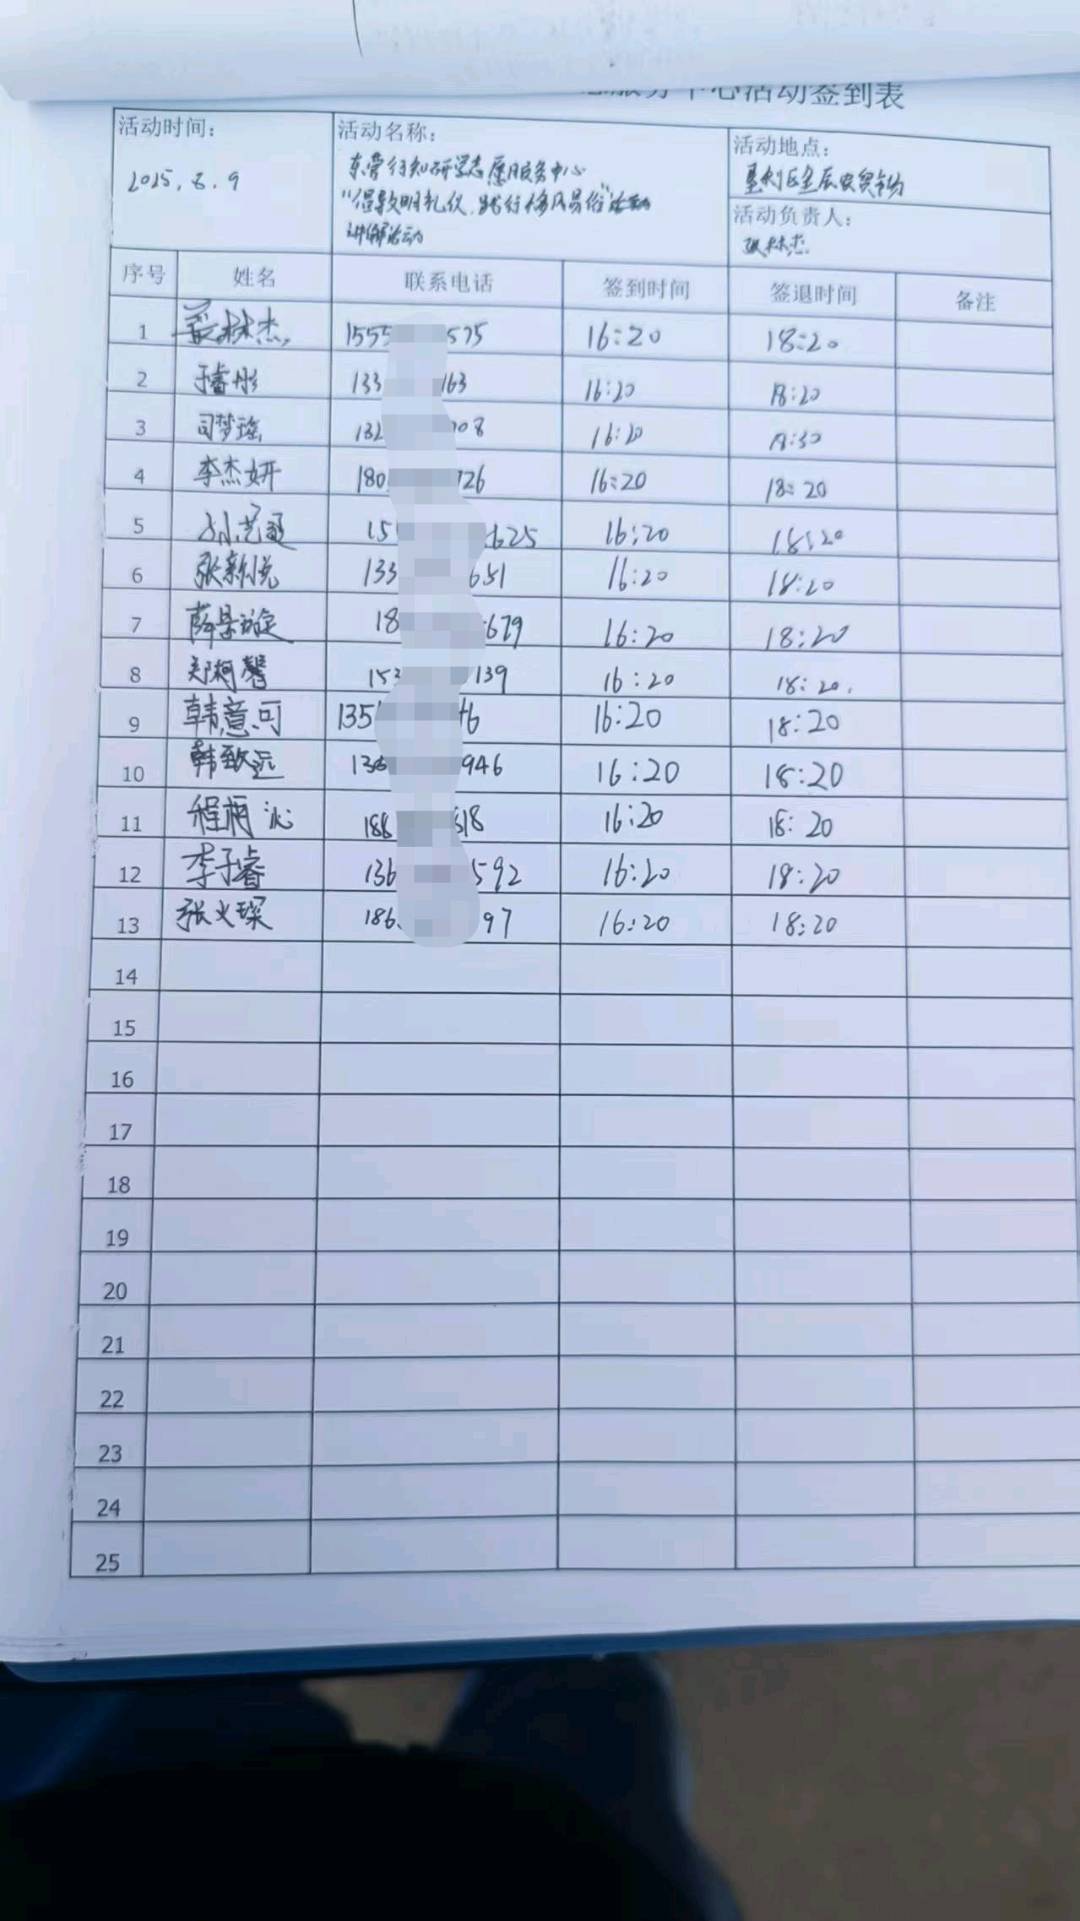 服务中心活动签到表
活动时间：
2025.6.9
活动名称：
东营行知研学志愿服务中心
“倡导文明礼仪，践行移风易俗”
讲解活动
活动地点：
活动负责人：
序号 姓名 联系电话 签到时间 签退时间 备注
1 林杰 1555 575 16:20 18:20
2 于睿彤 133 163 16:20 18:20
3 司梦瑶 132 08 16:20 18:30
4 李杰妍 180 726 16:20 18:20
5 15 625 16:20 18:20
6 张新悦 133 651 16:20 18:20
7 薛景 18 679 16:20 18:20
8 郑柯馨 153 139 16:20 18:20.
9 韩意可 135 46 16:20 18:20
10 韩致远 136 946 16:20 18:20
11 程 沁 188 618 16:20 18:20
12 李子睿 136 592 16:20 18:20
13 张 琛 186 97 16:20 18:20
14
15
16
17
18
19
20
21
22
23
24
25